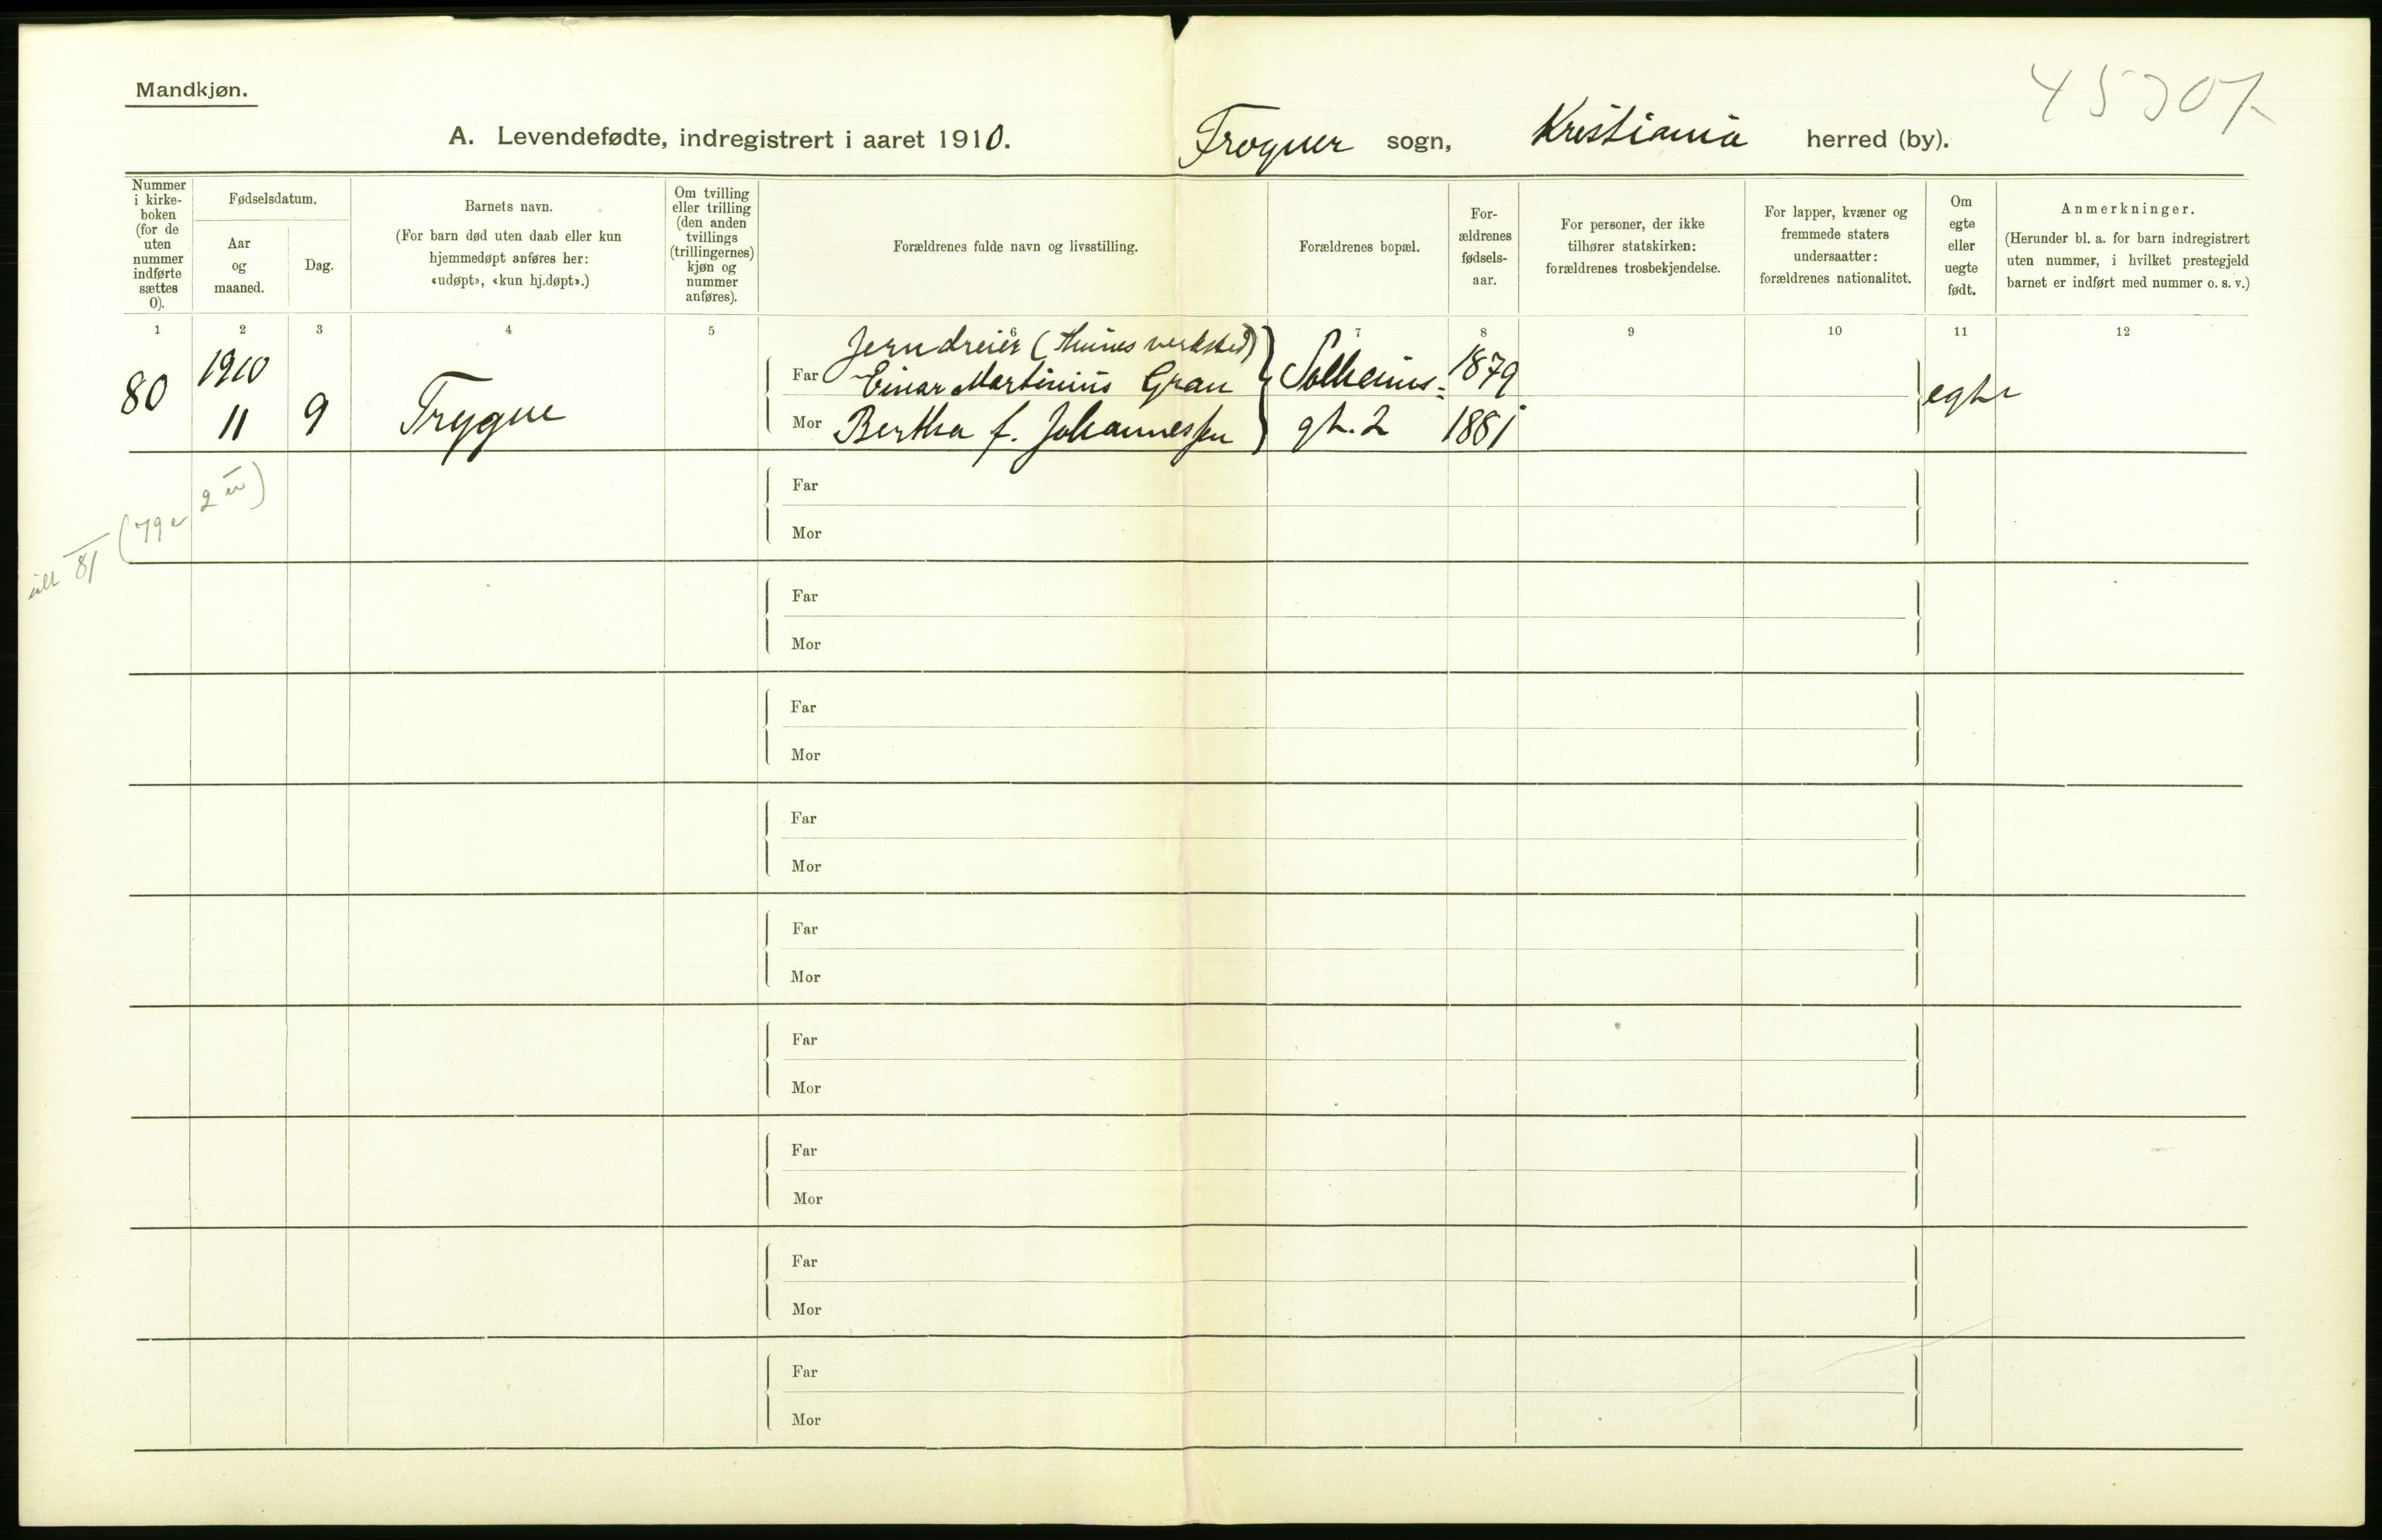 Mandkjøn.
A. Levendefødte, indregistrert i aaret 1910.
Frogner sogn, Kristiania herred (by).
Nummer i kirke-boken (for de uten nummer indførte sættes 0).
Fødselsdatum.
Aar og maaned.
Dag.
Barnets navn.
(For barn død uten daab eller kun hjemmedøpt anføres her: «udøpt», «kun hj.døpt».)
Om tvilling eller trilling (den anden tvillings (trillingernes) kjøn og nummer anføres).
Forældrenes fulde navn og livsstilling.
Forældrenes bopæl.
For-ældrenes fødsels-aar.
For personer, der ikke tilhører statskirken: forældrenes trosbekjendelse.
For lapper, kvæner og fremmede staters undersaatter: forældrenes nationalitet.
Om egte eller uegte født.
Anmerkninger.
(Herunder bl. a. for barn indregistrert uten nummer, i hvilket prestegjeld barnet er indført med nummer o. s. v.)
1 2 3 4 5 6 7 8 9 10 11 12
Jerndreier (Thunes verksted)
80 1910 Far Einar Martinius Gran Solheims- 1879 egte
11 9 Trygve Mor Bertha f. Johannessen gt. 2 1881
Far
Mor
(79 er 2
81
Far
Mor
Far
Mor
Far
Mor
Far
Mor
Far
Mor
Far
Mor
Far
Mor
Far
Mor